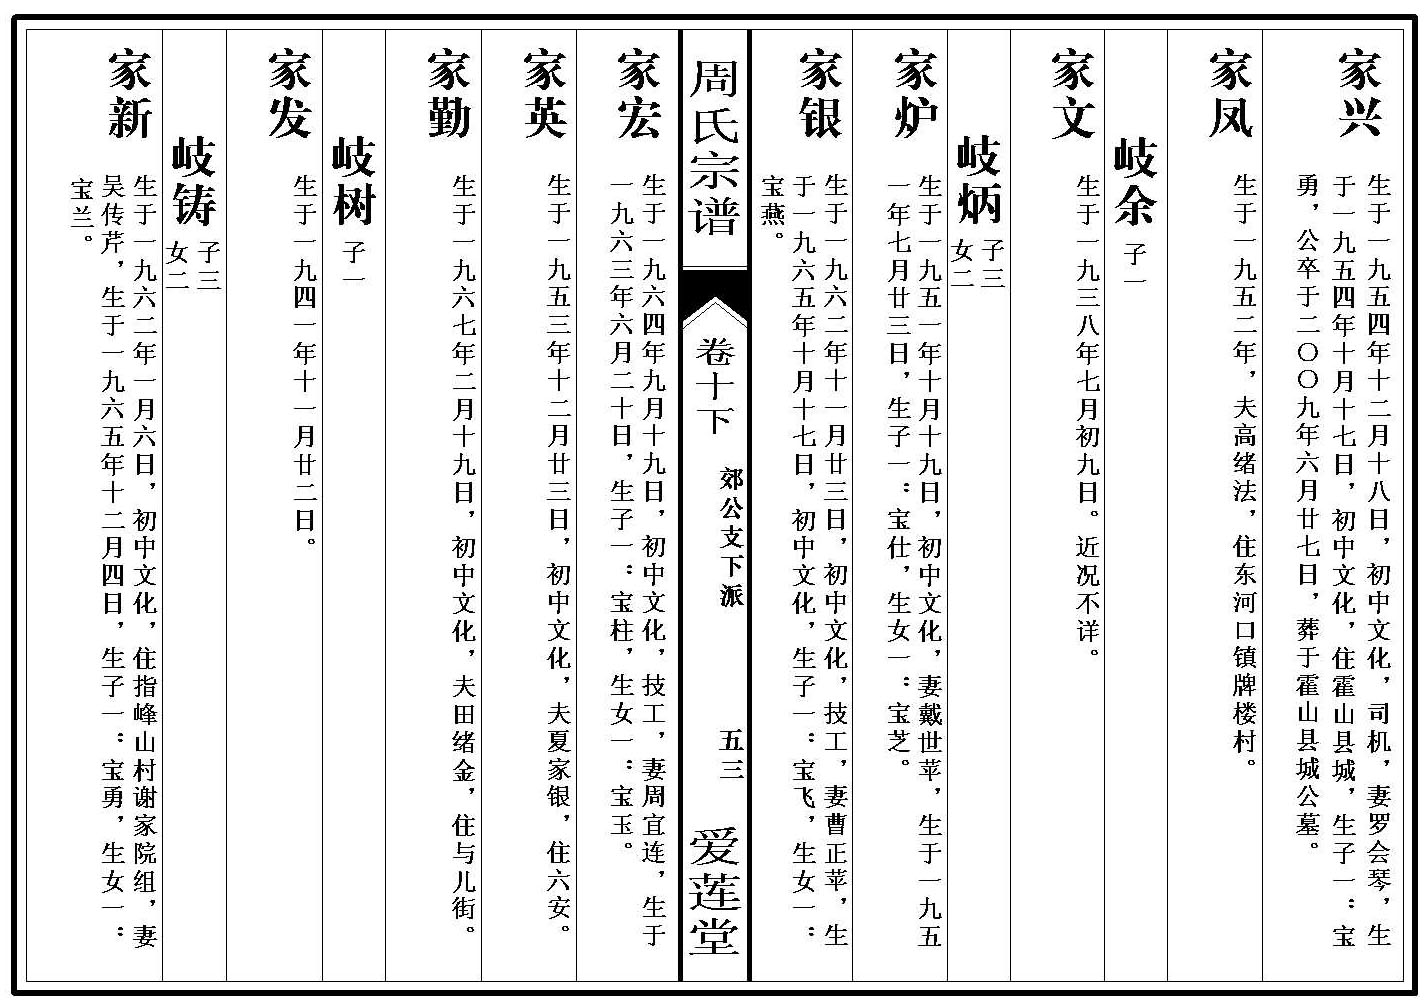 家兴
生于一九五四年十二月十八日，初中文化，司机，妻罗会琴，生
于一九五四年十月十七日，初中文化，住霍山县城，生子一：宝
勇，公卒于二〇〇九年六月廿七日，葬于霍山县城公墓。
家凤
生于一九五二年，夫高绪法，住东河口镇牌楼村。
岐余
子一
家文
生于一九三八年七月初九日。近况不详。
岐炳
子三
女二
家炉
生于一九五一年十月十九日，初中文化，妻戴世苹，生于一九五
一年七月廿三日，生子一：宝仕，生女一：宝芝。
家银
生于一九六二年十一月廿三日，初中文化，技工，妻曹正苹，生
于一九六五年十月十七日，初中文化，生子一：宝飞，生女一：
宝燕。
周氏宗谱
卷十下
郊公支下派
五三
爱莲堂
家宏
生于一九六四年九月十九日，初中文化，技工，妻周宜连，生于
一九六三年六月二十日，生子一：宝柱，生女一：宝玉。
家英
生于一九五三年十二月廿三日，初中文化，夫夏家银，住六安。
家勤
生于一九六七年二月十九日，初中文化，夫田绪金，住与儿街。
岐树
子一
家发
生于一九四一年十一月廿二日。
岐铸
子三
女二
家新
生于一九六二年一月六日，初中文化，住指峰山村谢家院组，妻
吴传芹，生于一九六五年十二月四日，生子一：宝勇，生女一：
宝兰。